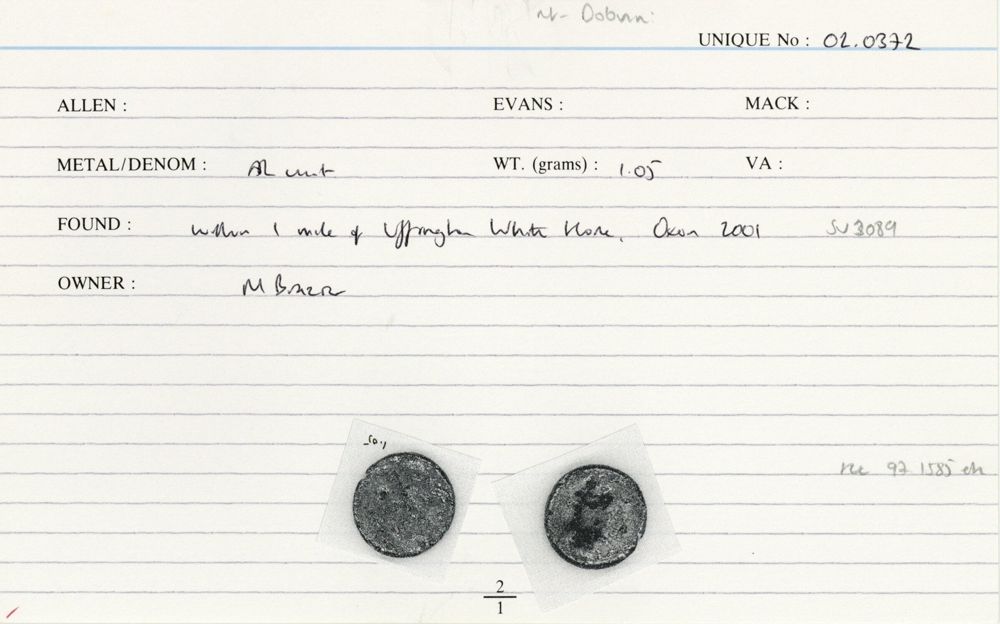 Dobunni
UNIQUE No : 02.0372
ALLEN : EVANS : MACK :
METAL/DENOM : AR unit WT. (grams) : 1.05 VA :
FOUND : within 1 mile of Uffington White Horse, Oxon 2001 SU 3089
OWNER : M
1.05
97.1585
2
1